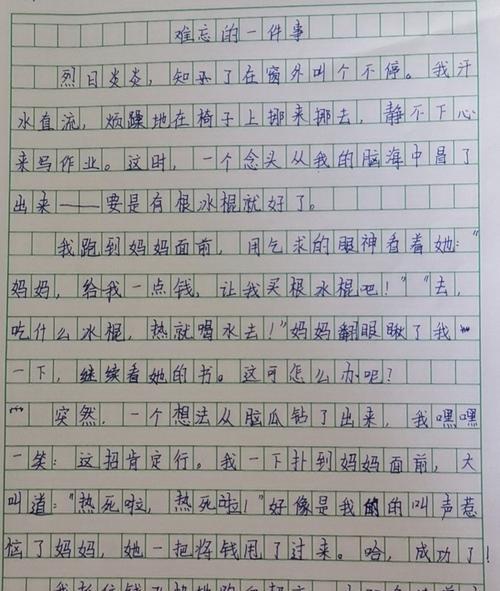 难忘的一件事
烈日炎炎，知了在窗外叫个不停。我汗
水直流，烦躁地在椅子上挪来挪去，静不下心
来写作业。这时，一个念头从我的脑海中冒了
出来——要是有根冰棍就好了。
我跑到妈妈面前，用乞求的眼神看着她："
妈妈，给我一点钱，让我买根冰棍吧！""去，
吃什么冰棍，热就喝水去！"妈妈翻眼瞅了我
一下，继续看她的书。这可怎么办呢？
突然，一个想法从脑瓜钻了出来，我嘿嘿
一笑：这招肯定行。我一下扑到妈妈面前，大
叫道："热死啦，热死啦！"好像是我的的叫声惹
恼了妈妈，她一把将钱甩了过来。哈，成功了！